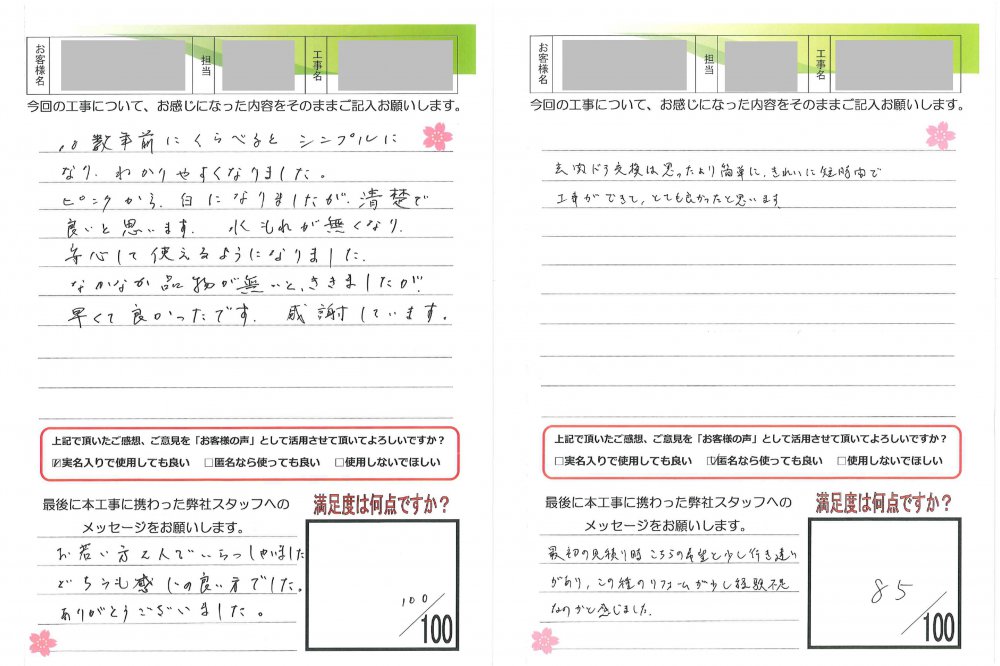 お客様名
担当
工事名
今回の工事について、お感じになった内容をそのままご記入お願いします。
数年前にくらべると シンプルに
なり、わかりやすくなりました。
ピンクから、白になりましたが、清楚で
良いと思います。 水もれが無くなり、
安心して使えるようになりました。
なかなか品物が無いと、ききましたが、
早くて良かったです。 感謝しています。
上記で頂いたご感想、ご意見を「お客様の声」として活用させて頂いてよろしいですか？
☑実名入りで使用しても良い □匿名なら使っても良い □使用しないでほしい
最後に本工事に携わった弊社スタッフへの
メッセージをお願いします。
お若い方2人でいらっしゃいました
どちらも感じの良い方でした。
ありがとうございました。
満足度は何点ですか？
100/100
お客様名
担当
工事名
今回の工事について、お感じになった内容をそのままご記入お願いします。
玄関ドア交換は思ったより簡単に、きれいに短時間で
工事ができて、とても良かったと思います
上記で頂いたご感想、ご意見を「お客様の声」として活用させて頂いてよろしいですか？
□実名入りで使用しても良い ☑匿名なら使っても良い □使用しないでほしい
最後に本工事に携わった弊社スタッフへの
メッセージをお願いします。
最初の見積り時こちらの希望と少し行き違い
があり、この種のリフォームが少し経験不足
なのかと感じました。
満足度は何点ですか？
85/100